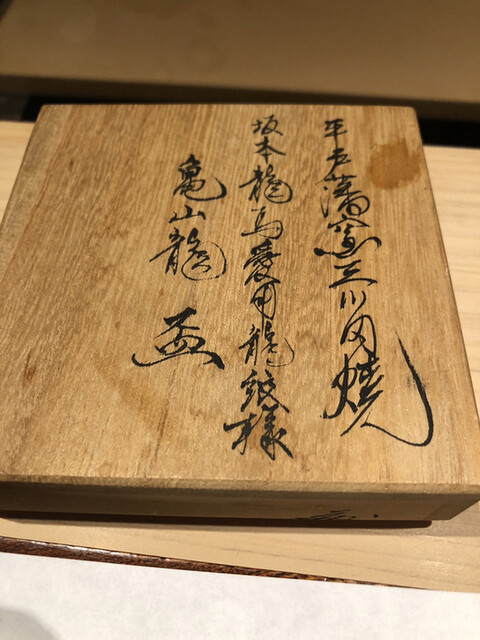 平戸藩窯三川内焼
坂本龍馬愛用龍紋様
亀山龍盃